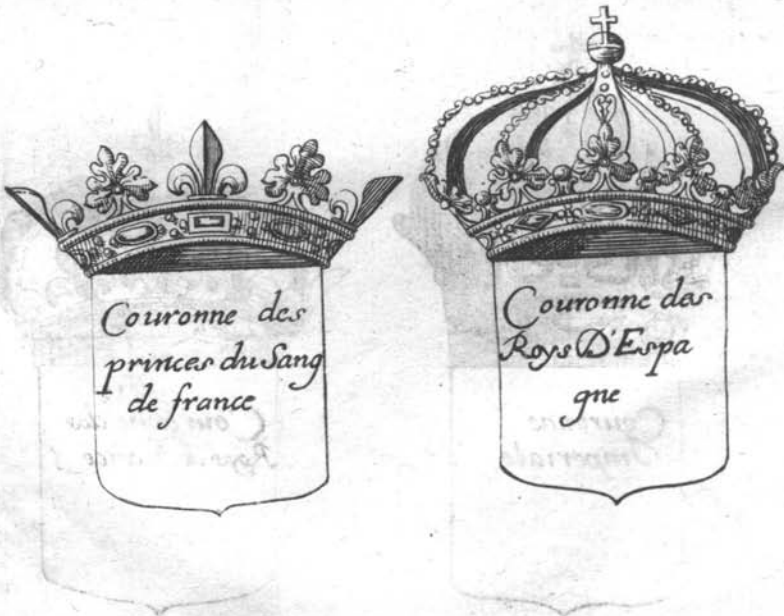 Couronne des
princes du Sang
de france
Couronne des
Roys D'Espa
gne